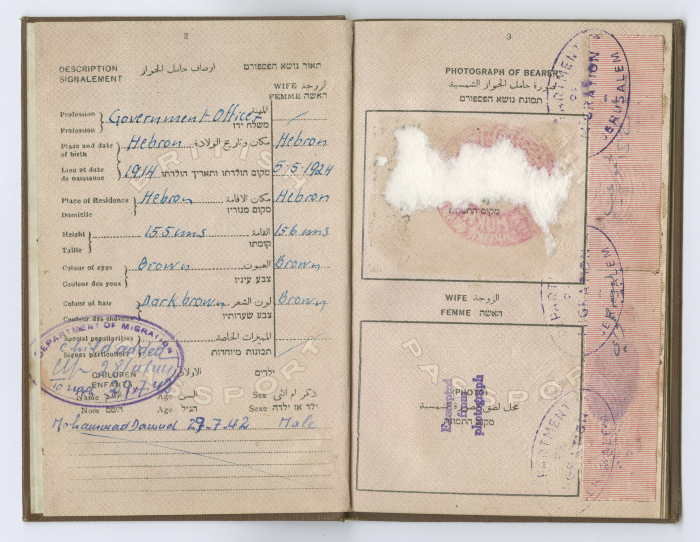 2
DESCRIPTION
SIGNALEMENT
اوصاف حامل الجواز
תאור נושא הפספורט
WIFE الزوجة
FEMME האשה
Profession
Profession
Government Officer
المهنة
משלח ידו
Place and date
of birth
Hebron
مكان وتاريخ الولادة
Hebron
Lieu et date
de naissance
1914
מקום הולדתו ותאריך הולדתו
5.5.1924
Place of Residence
Domicile
Hebron
مكان الاقامة
מקום מגוריו
Hebron
Height
Taille
155 cms
القامة
קומתו
156 cms
Colour of eyes
Couleur des yeux
Brown
العيون
צבע עיניו
Brown
Colour of hair
Couleur des cheveux
Dark brown
لون الشعر
צבע שערותיו
Brown
Special peculiarities
Signes particuliers
المميزات الخاصة
תכונות מיוחדות
DEPARTMENT OF MIGRATION
Child added
CHILDREN
ENFANTS
الاولاد
ילדים
Name
Nom
השם
Age السن
Age הגיל
Sex ذكر ام انثى
Sexe ילד או ילדה
Mohammad Dawud 29.7.42 Male
BRITISH
PASSPORT
3
PHOTOGRAPH OF BEARER
صورة حامل الجواز الشمسية
תמונת נושא הפספורט
WIFE الزوجة
FEMME האשה
(PHOTO)
محل لصق الصورة الشمسية
מקום התמונה
Exempted
from
photograph
PASSPORT
DEPARTMENT OF MIGRATION
JERUSALEM